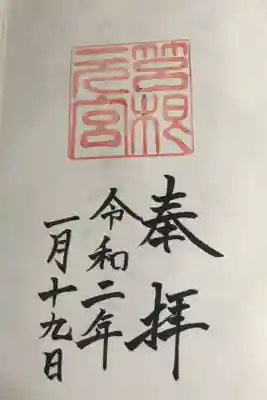 筥根
元宮
奉拝
令和二年
一月十九日